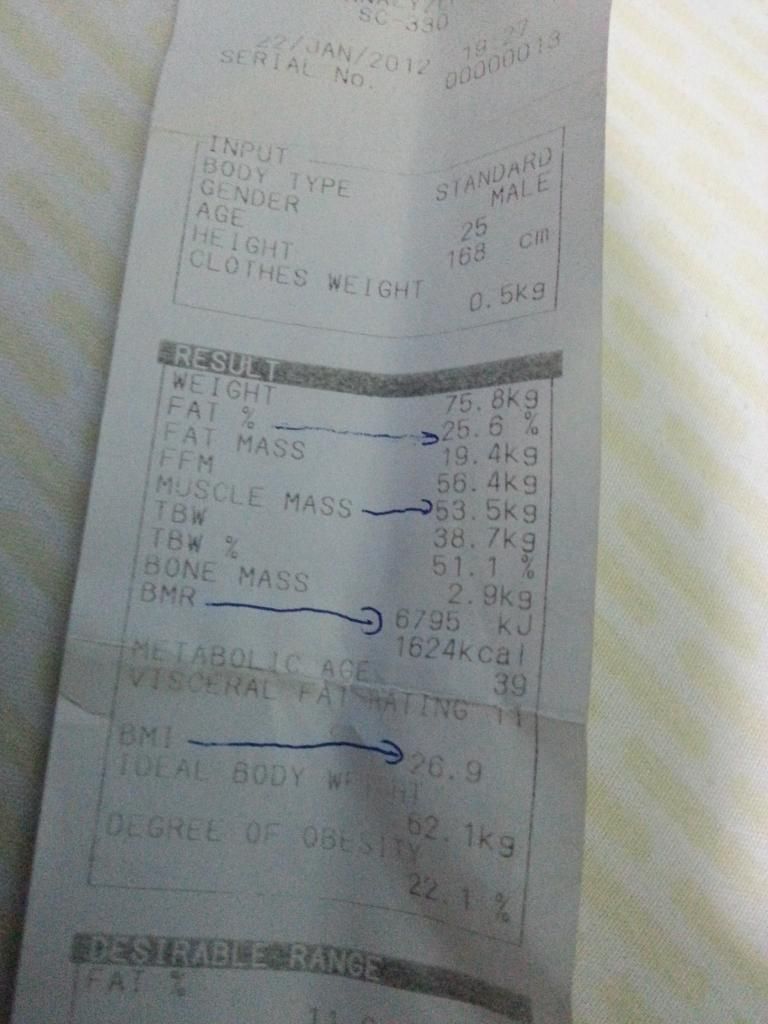 SC-330
22/JAN/2012 19:27
SERIAL No. 00000013
INPUT
BODY TYPE STANDARD
GENDER MALE
AGE 25
HEIGHT 168 cm
CLOTHES WEIGHT 0.5kg
RESULT
WEIGHT 75.8kg
FAT % 25.6 %
FAT MASS 19.4kg
FFM 56.4kg
MUSCLE MASS 53.5kg
TBW 38.7kg
TBW % 51.1 %
BONE MASS 2.9kg
BMR 6795 kJ
1624kcal
METABOLIC AGE 39
VISCERAL FAT RATING 11
BMI 26.9
IDEAL BODY WEIGHT
62.1kg
DEGREE OF OBESITY
22.1 %
DESIRABLE RANGE
FAT %